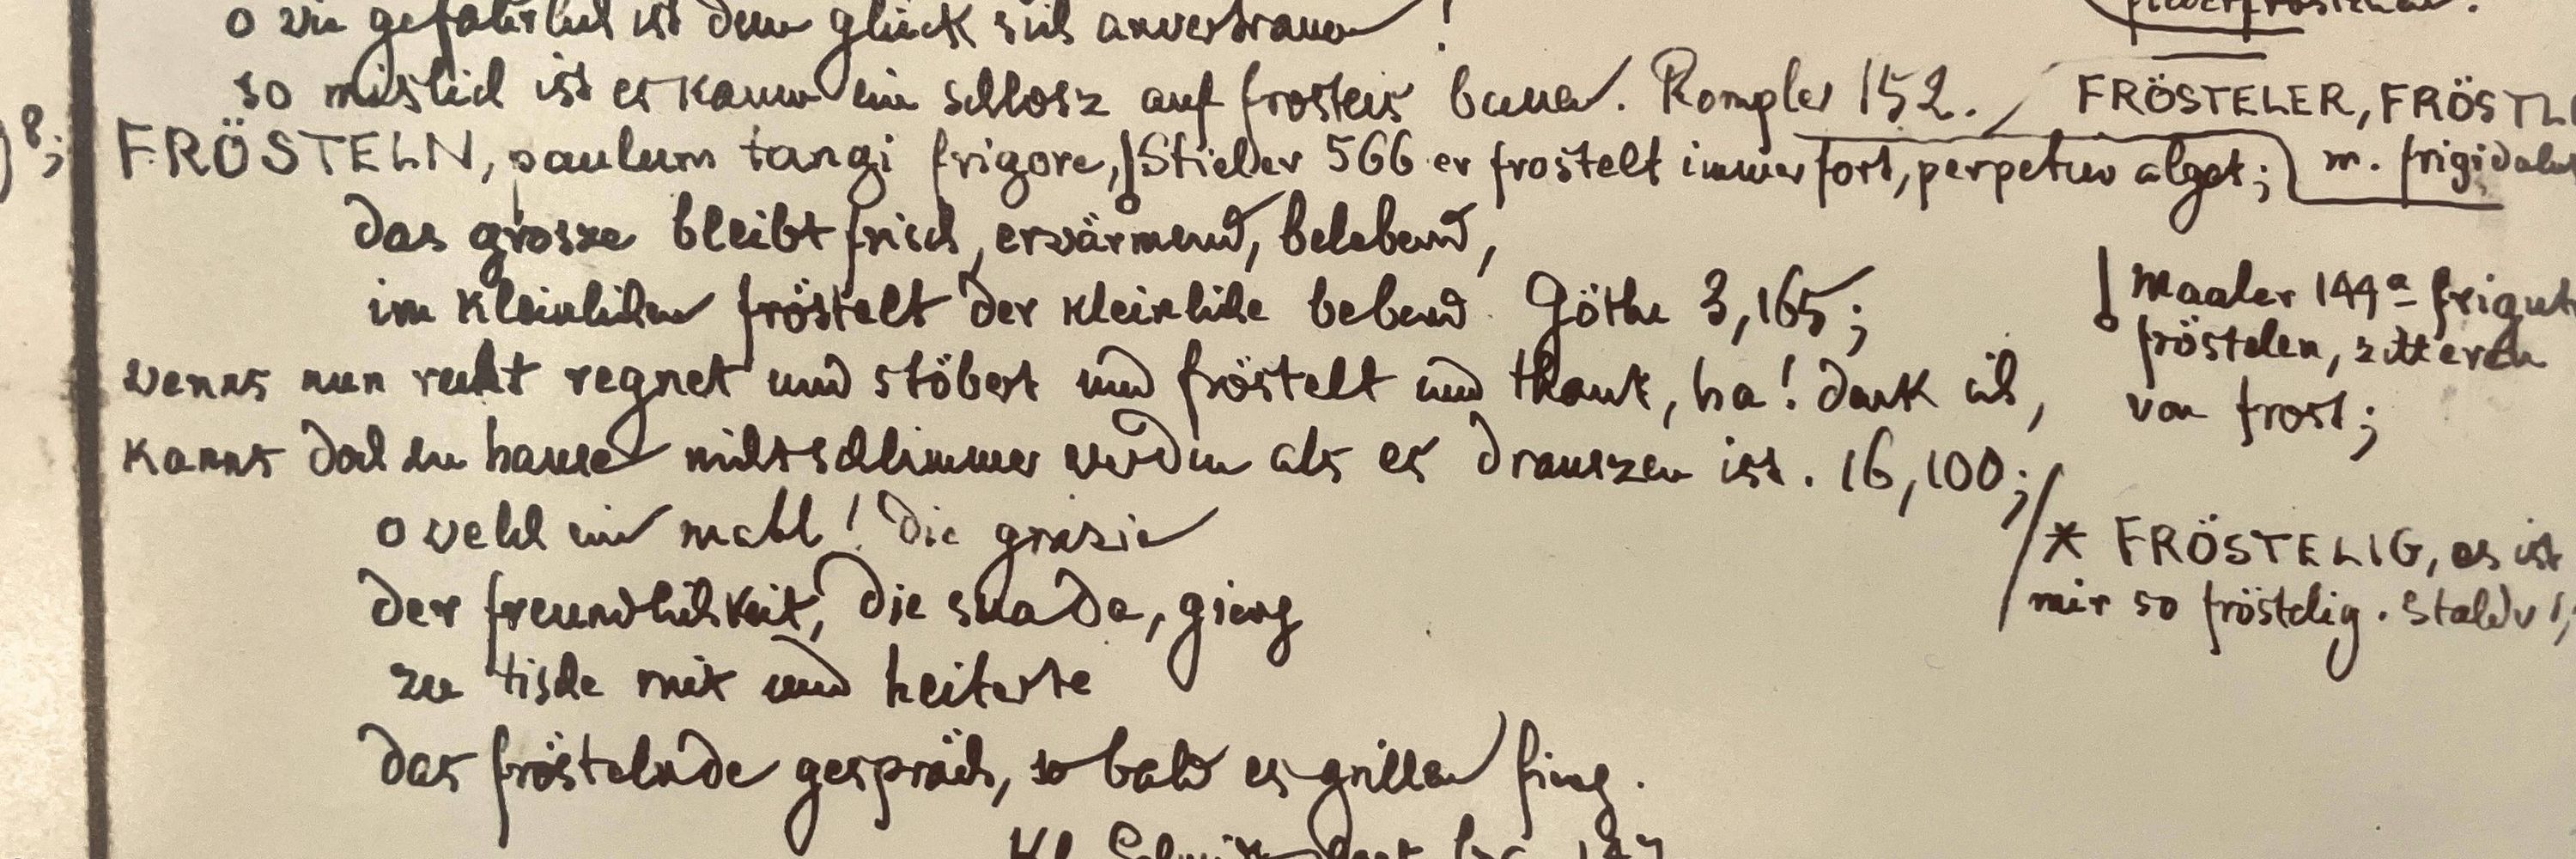 o wie gefährlich ist dem glück sich anvertrauen!
so mislich ist es kaum ein schlosz auf frosteis bauen. Rompler 152.
FRÖSTELER, FRÖSTL
m. frigidulus
8;
FRÖSTELN, paulum tangi frigore, Stieler 566 er frostelt immerfort, perpetuo alget;
das grosze bleibt frisch, erwärmend, belebend,
im kleinlichen fröstelt der kleinliche bebend. Göthe 3,165;
Maaler 144a frigut
fröstelen, zitteren
von frost;
wenns nun recht regnet und stöbert und fröstelt und thaut, ha! denk ich,
kanns doch zu hause nicht schlimmer werden als es drauszen ist. 16,100;
* FRÖSTELIG, es ist
mir so fröstelig. Stalder 1,
o welch ein mahl! die grazie
der freundlichkeit, die suada, gieng
zu tische mit und heiterte
das fröstelnde gespräch, so bald es grillen fing.
Kl. Schmidt